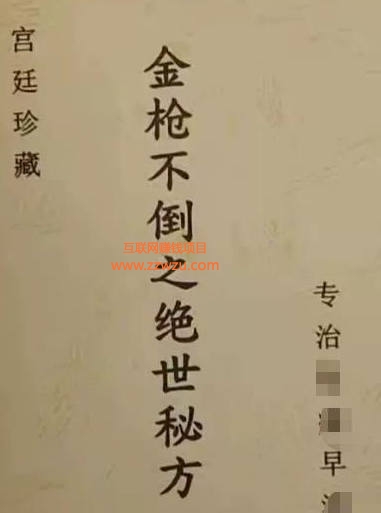 宫廷珍藏
金枪不倒之绝世秘方
互联网赚钱项目
www.zzwzu.com
专治早